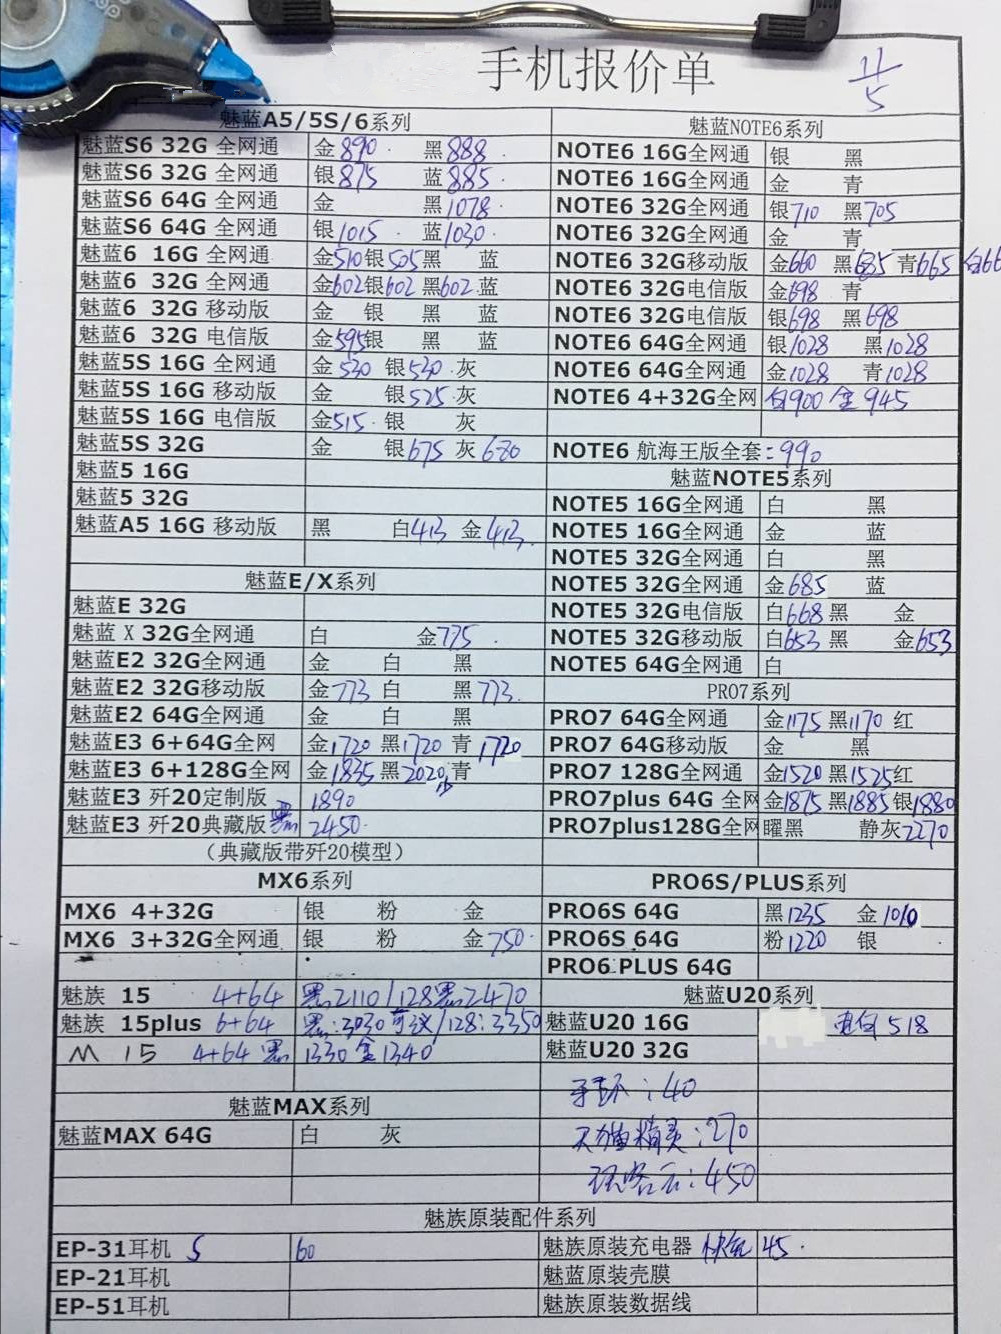 手机报价单
11/5
魅蓝A5/5S/6系列
魅蓝S6 32G 全网通 金890 黑888
魅蓝S6 32G 全网通 银875 蓝885
魅蓝S6 64G 全网通 金 黑1078
魅蓝S6 64G 全网通 银1015 蓝1030
魅蓝6 16G 全网通 金510银505黑 蓝
魅蓝6 32G 全网通 金602银602黑602蓝
魅蓝6 32G 移动版 金 银 黑 蓝
魅蓝6 32G 电信版 金595银 黑 蓝
魅蓝5S 16G 全网通 金530 银530灰
魅蓝5S 16G 移动版 金 银525灰
魅蓝5S 16G 电信版 金515 银 灰
魅蓝5S 32G 金 银675 灰680
魅蓝5 16G
魅蓝5 32G
魅蓝A5 16G 移动版 黑 白413 金413
魅蓝E/X系列
魅蓝E 32G
魅蓝X 32G全网通 白 金775
魅蓝E2 32G全网通 金 白 黑
魅蓝E2 32G移动版 金773 白 黑773
魅蓝E2 64G全网通 金 白 黑
魅蓝E3 6+64G全网 金1720 黑1720 青1720
魅蓝E3 6+128G全网 金1835 黑2020 青
魅蓝E3 歼20定制版 1890
魅蓝E3 歼20典藏版 黑 2450
（典藏版带歼20模型）
MX6系列
MX6 4+32G 银 粉 金
MX6 3+32G全网通 银 粉 金750
魅族 15 4+64 黑2110/128黑2470
魅族 15plus 6+64 黑:3030可议/128:3350
M 15 4+64 黑1330金1340
魅蓝MAX系列
魅蓝MAX 64G 白 灰
魅蓝NOTE6系列
NOTE6 16G全网通 银 黑
NOTE6 16G全网通 金 青
NOTE6 32G全网通 银710 黑705
NOTE6 32G全网通 金 青
NOTE6 32G移动版 金660 黑685青665 白66
NOTE6 32G电信版 金698 青
NOTE6 32G电信版 银698 黑698
NOTE6 64G全网通 银1028 黑1028
NOTE6 64G全网通 金1028 青1028
NOTE6 4+32G全网 白900金945
NOTE6 航海王版全套:990
魅蓝NOTE5系列
NOTE5 16G全网通 白 黑
NOTE5 16G全网通 金 蓝
NOTE5 32G全网通 白 黑
NOTE5 32G全网通 金685 蓝
NOTE5 32G电信版 白668黑 金
NOTE5 32G移动版 白653黑 金653
NOTE5 64G全网通 白
PRO7系列
PRO7 64G全网通 金1175黑1170红
PRO7 64G移动版 金 黑
PRO7 128G全网通 金1520黑1525红
PRO7plus 64G 全网 金1875黑1885银1880
PRO7plus128G全网 曜黑 静灰2270
PRO6S/PLUS系列
PRO6S 64G 黑1235 金1010
PRO6S 64G 粉1220 银
PRO6 PLUS 64G
魅蓝U20系列
魅蓝U20 16G 电白518
魅蓝U20 32G
手环:40
天猫精灵:270
:450
魅族原装配件系列
EP-31耳机 60
EP-21耳机
EP-51耳机
魅族原装充电器 快充45
魅蓝原装壳膜
魅族原装数据线